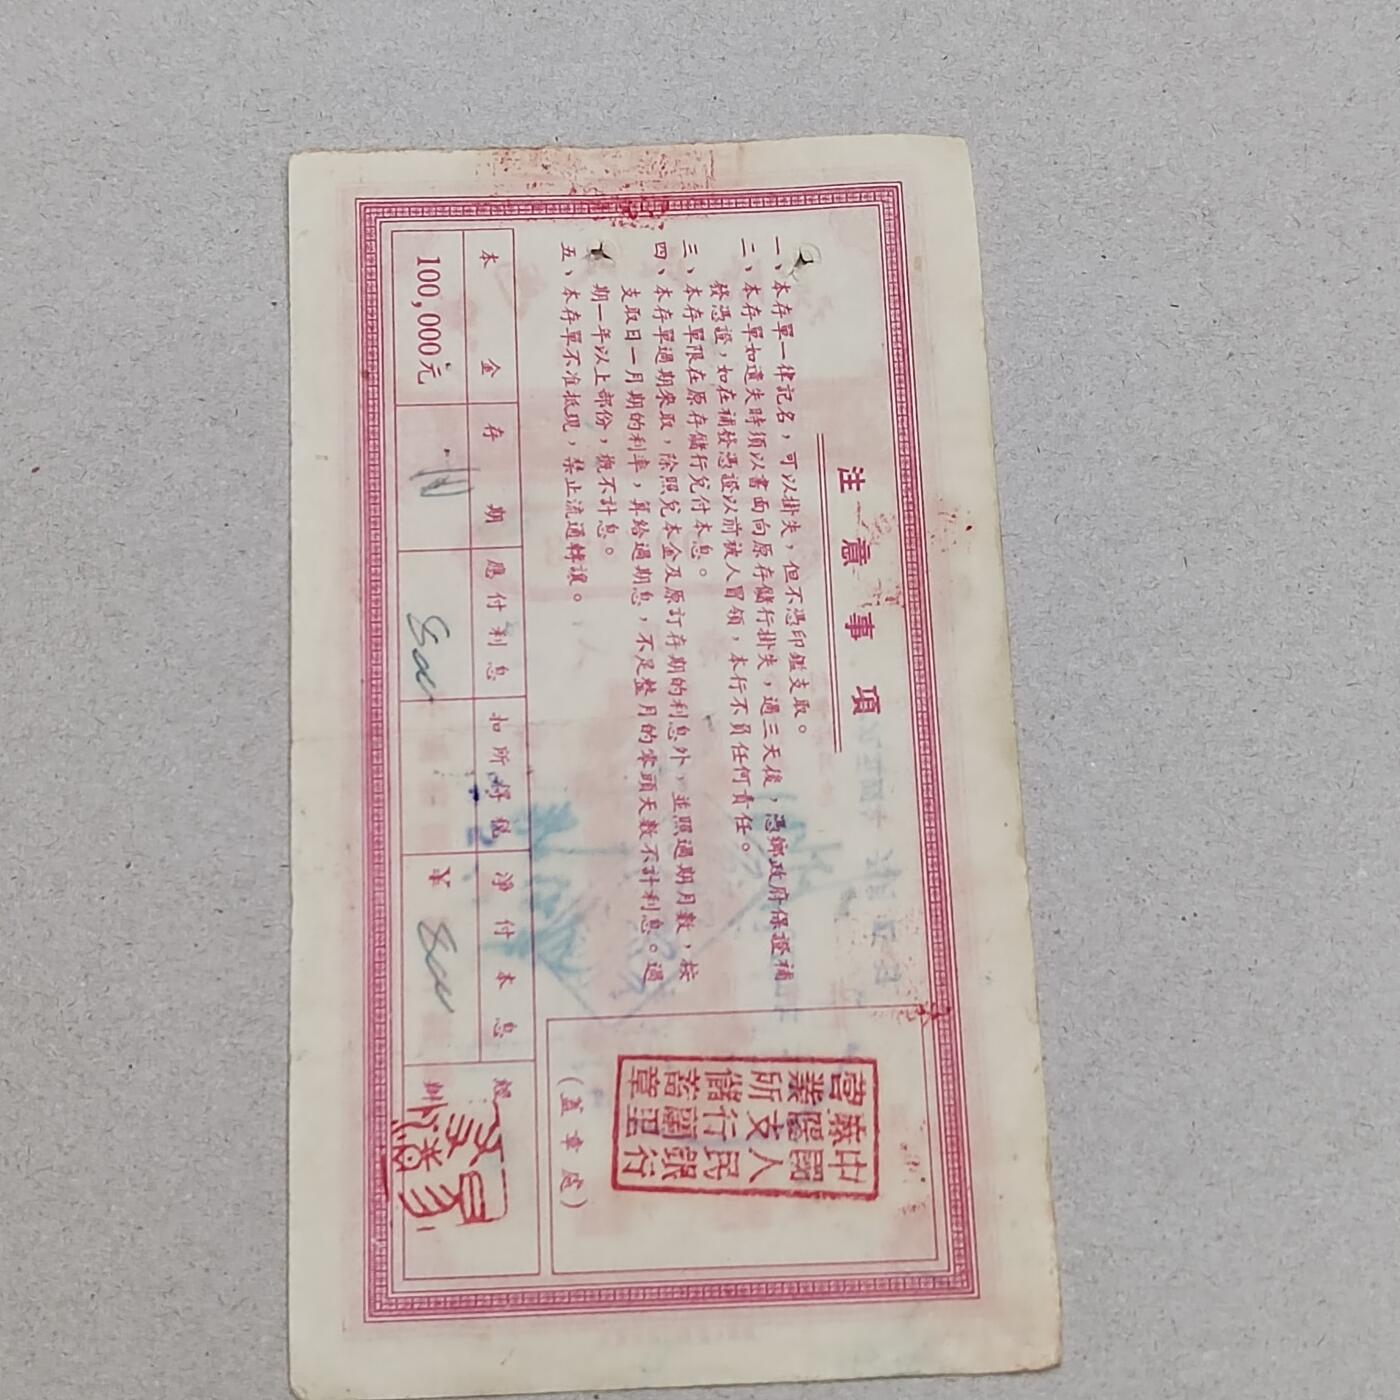 注意事項
一、本存單一律記名，可以掛失，但不憑印鑑支取。
二、本存單如遺失時須以書面向原存儲行掛失，過三天後，憑鄉政府保證補
發憑證，如在補發憑證以前被人冒領，本行不負任何責任。
三、本存單限在原存儲行兌付本息。
四、本存單過期來取，除照兌本金及原訂存期的利息外，並照過期月數，按
支取日一月期的利率，算給過期息，不足整月的零頭天數不計利息。過
期一年以上部份，概不計息。
五、本存單不准抵現，禁止流通轉讓。
本金 存期 應付利息 扣所得稅 淨付本息
100,000元
¥
(蓋章處)
中國人民銀行
麻陽支行蘭里
營業所儲蓄章